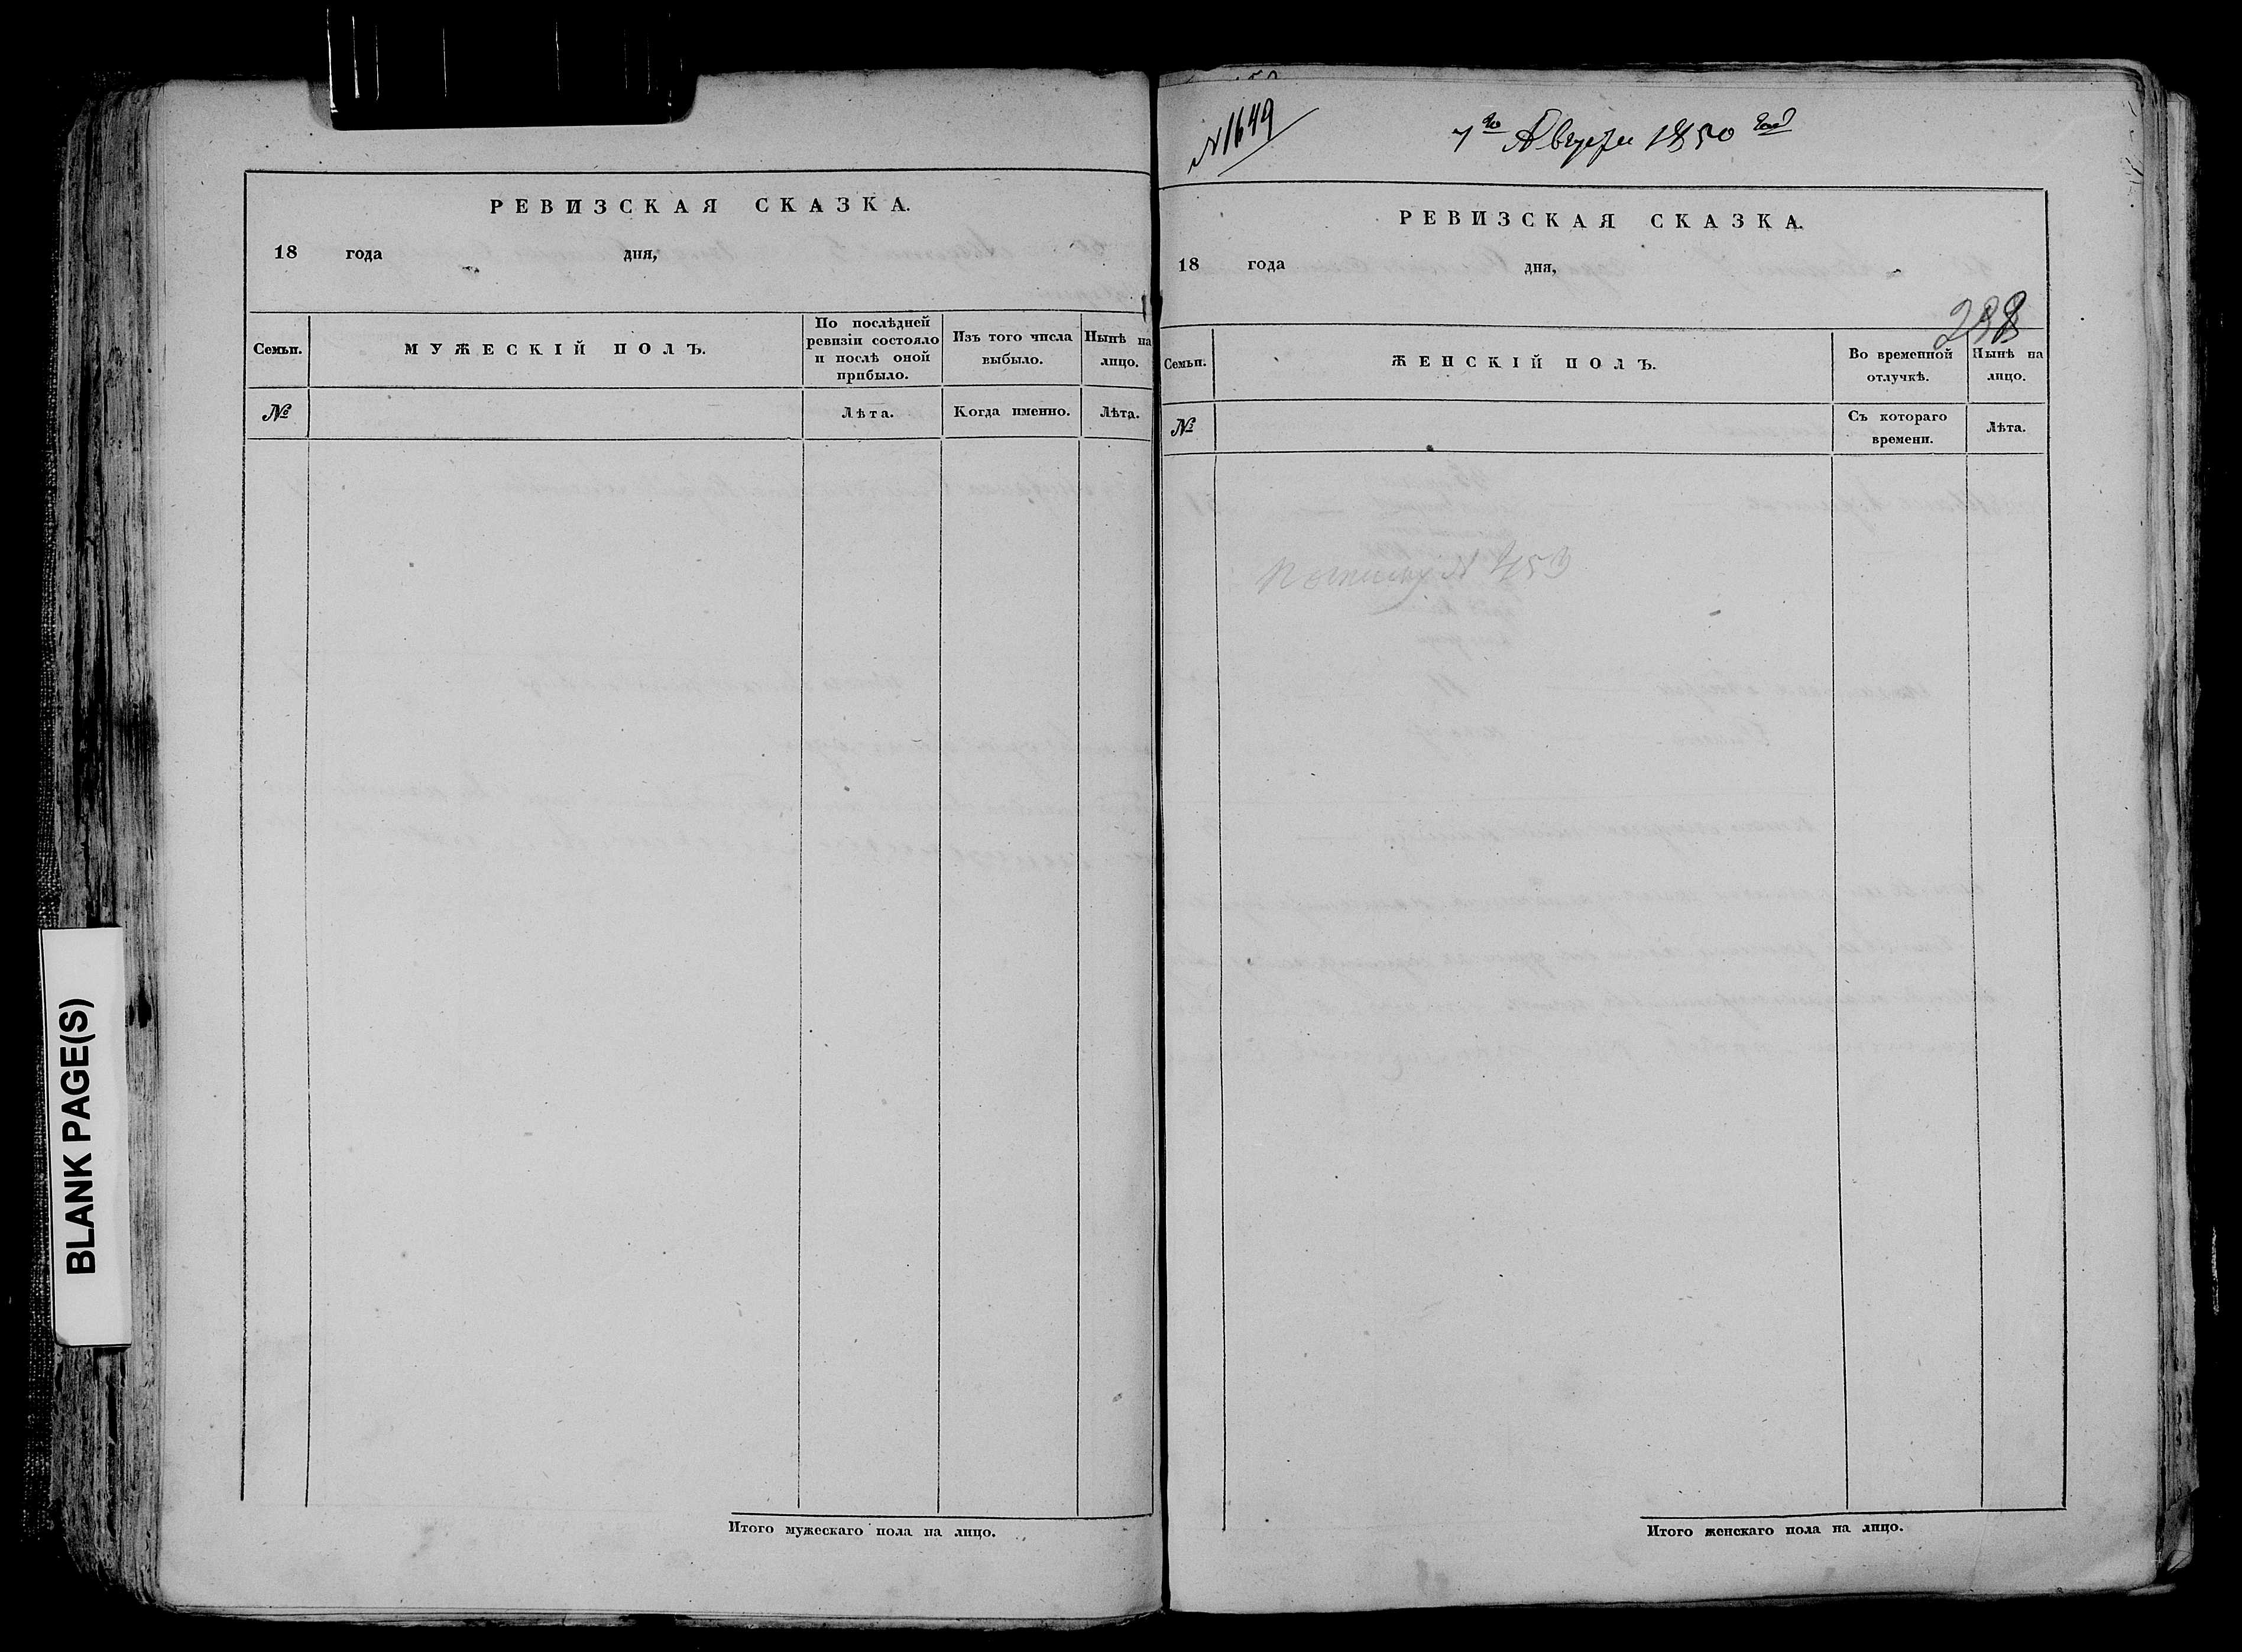 BLANK PAGE(S)
РЕВИЗСКАЯ СКАЗКА.
18 года дня,
Семьи.
МУЖЕСКІЙ ПОЛЪ.
По послѣдней
ревизіи состояло
и послѣ оной
прибыло.
Изъ того числа
выбыло.
Нынѣ на
лицо.
№
Лѣта.
Когда именно.
Лѣта.
Итого мужескаго пола на лицо.
№ 1649
7го Августа 1850 года
РЕВИЗСКАЯ СКАЗКА.
18 года дня,
Семьи.
ЖЕНСКІЙ ПОЛЪ.
Во временной
отлучкѣ.
Нынѣ на
лицо.
№
Съ котораго
времени.
Лѣта.
Итого женскаго пола на лицо.